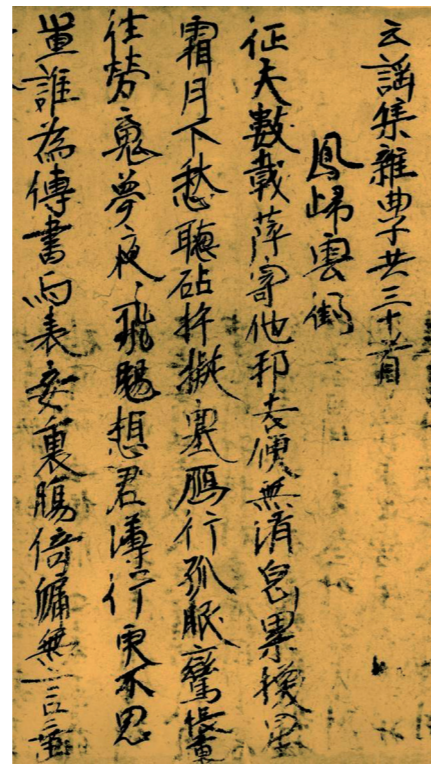 云謡集雜曲子共三十首
鳳歸雲
征夫數載萍寄他邦去便無消息累換星
霜月下愁聽砧杵擬塞鴈行孤眠鸞帳裏
往勞魂夢夜〻飛颺想君薄行更不思
量誰為傳書与表妾衷膓倚牖無言